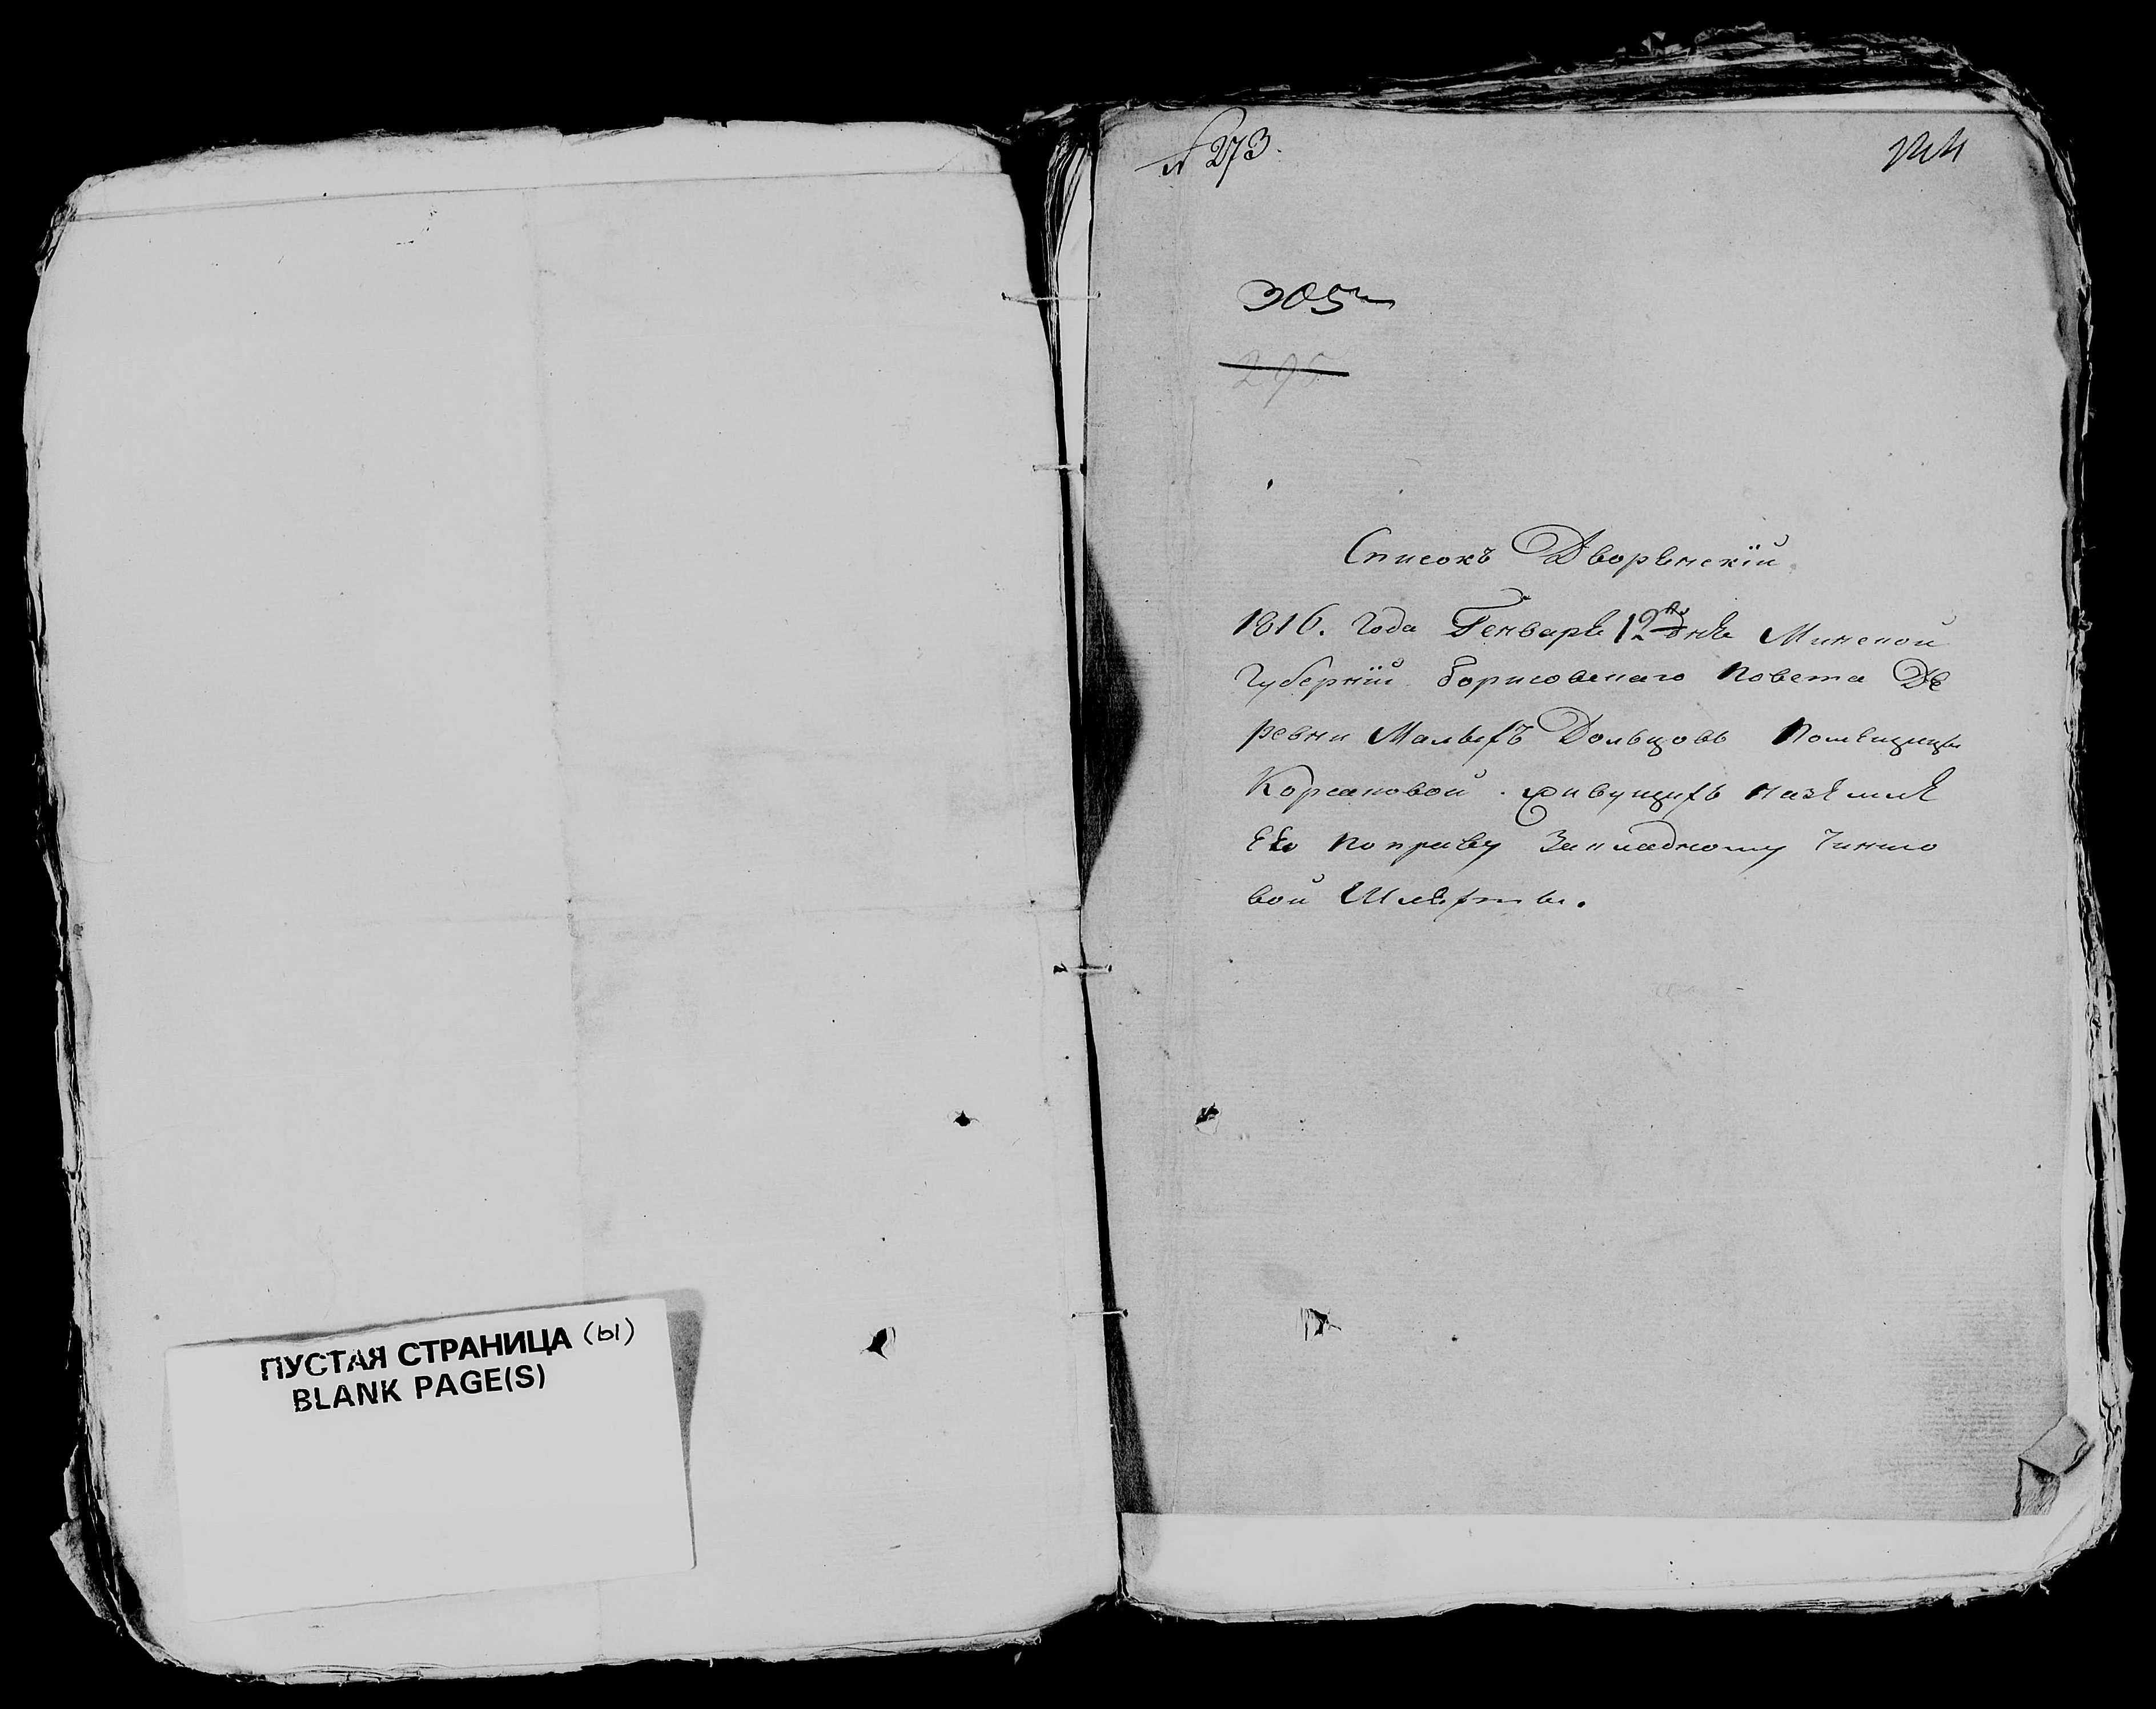 ПУСТАЯ СТРАНИЦА (ы)
BLANK PAGE(S)
№ 273.
305
295
Списокъ Дворянскій
1816. года Генваря 12 дня Минской
Губерніи Борисовскаго Повета Де
ревни Малыхъ Дольцовъ Помещицы
Корсаковой живущихъ на земле
Ее по праву Закладному Чиншо
вой Шляхты.